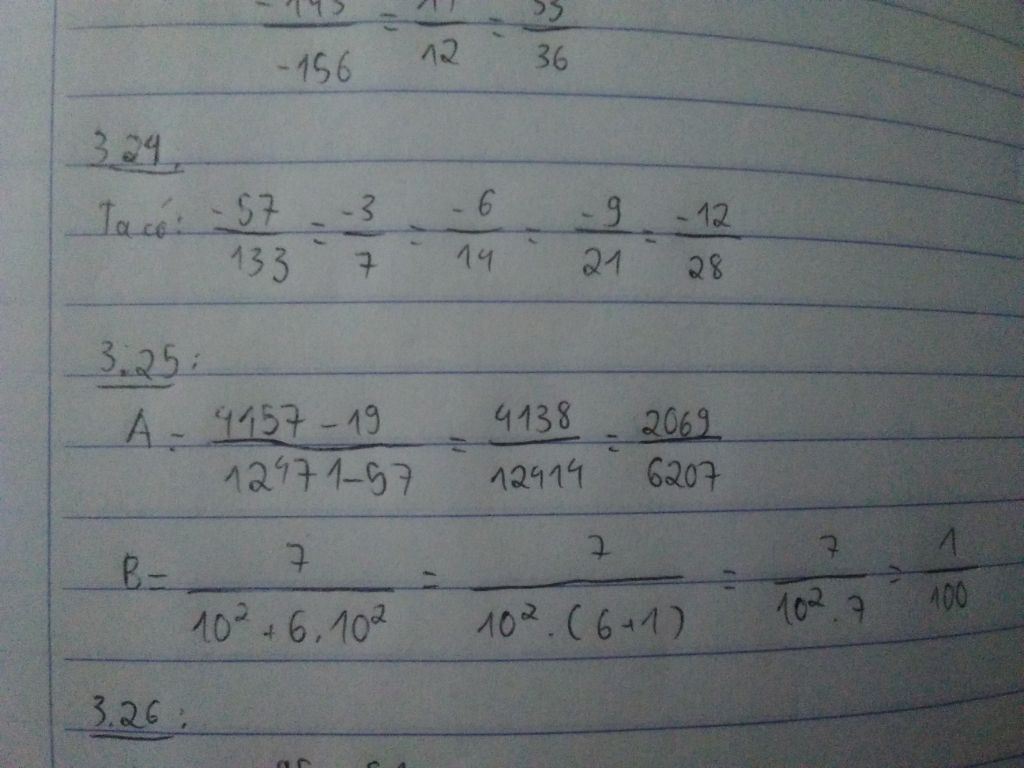 -143/-156 = 11/12 = 33/36
3.24.
Ta có: -57/133 = -3/7 = -6/14 = -9/21 = -12/28
3.25:
A = (4157 - 19)/(12471 - 57) = 4138/12414 = 2069/6207
B = 7/(10² + 6.10²) = 7/(10².(6+1)) = 7/(10².7) = 1/100
3.26: